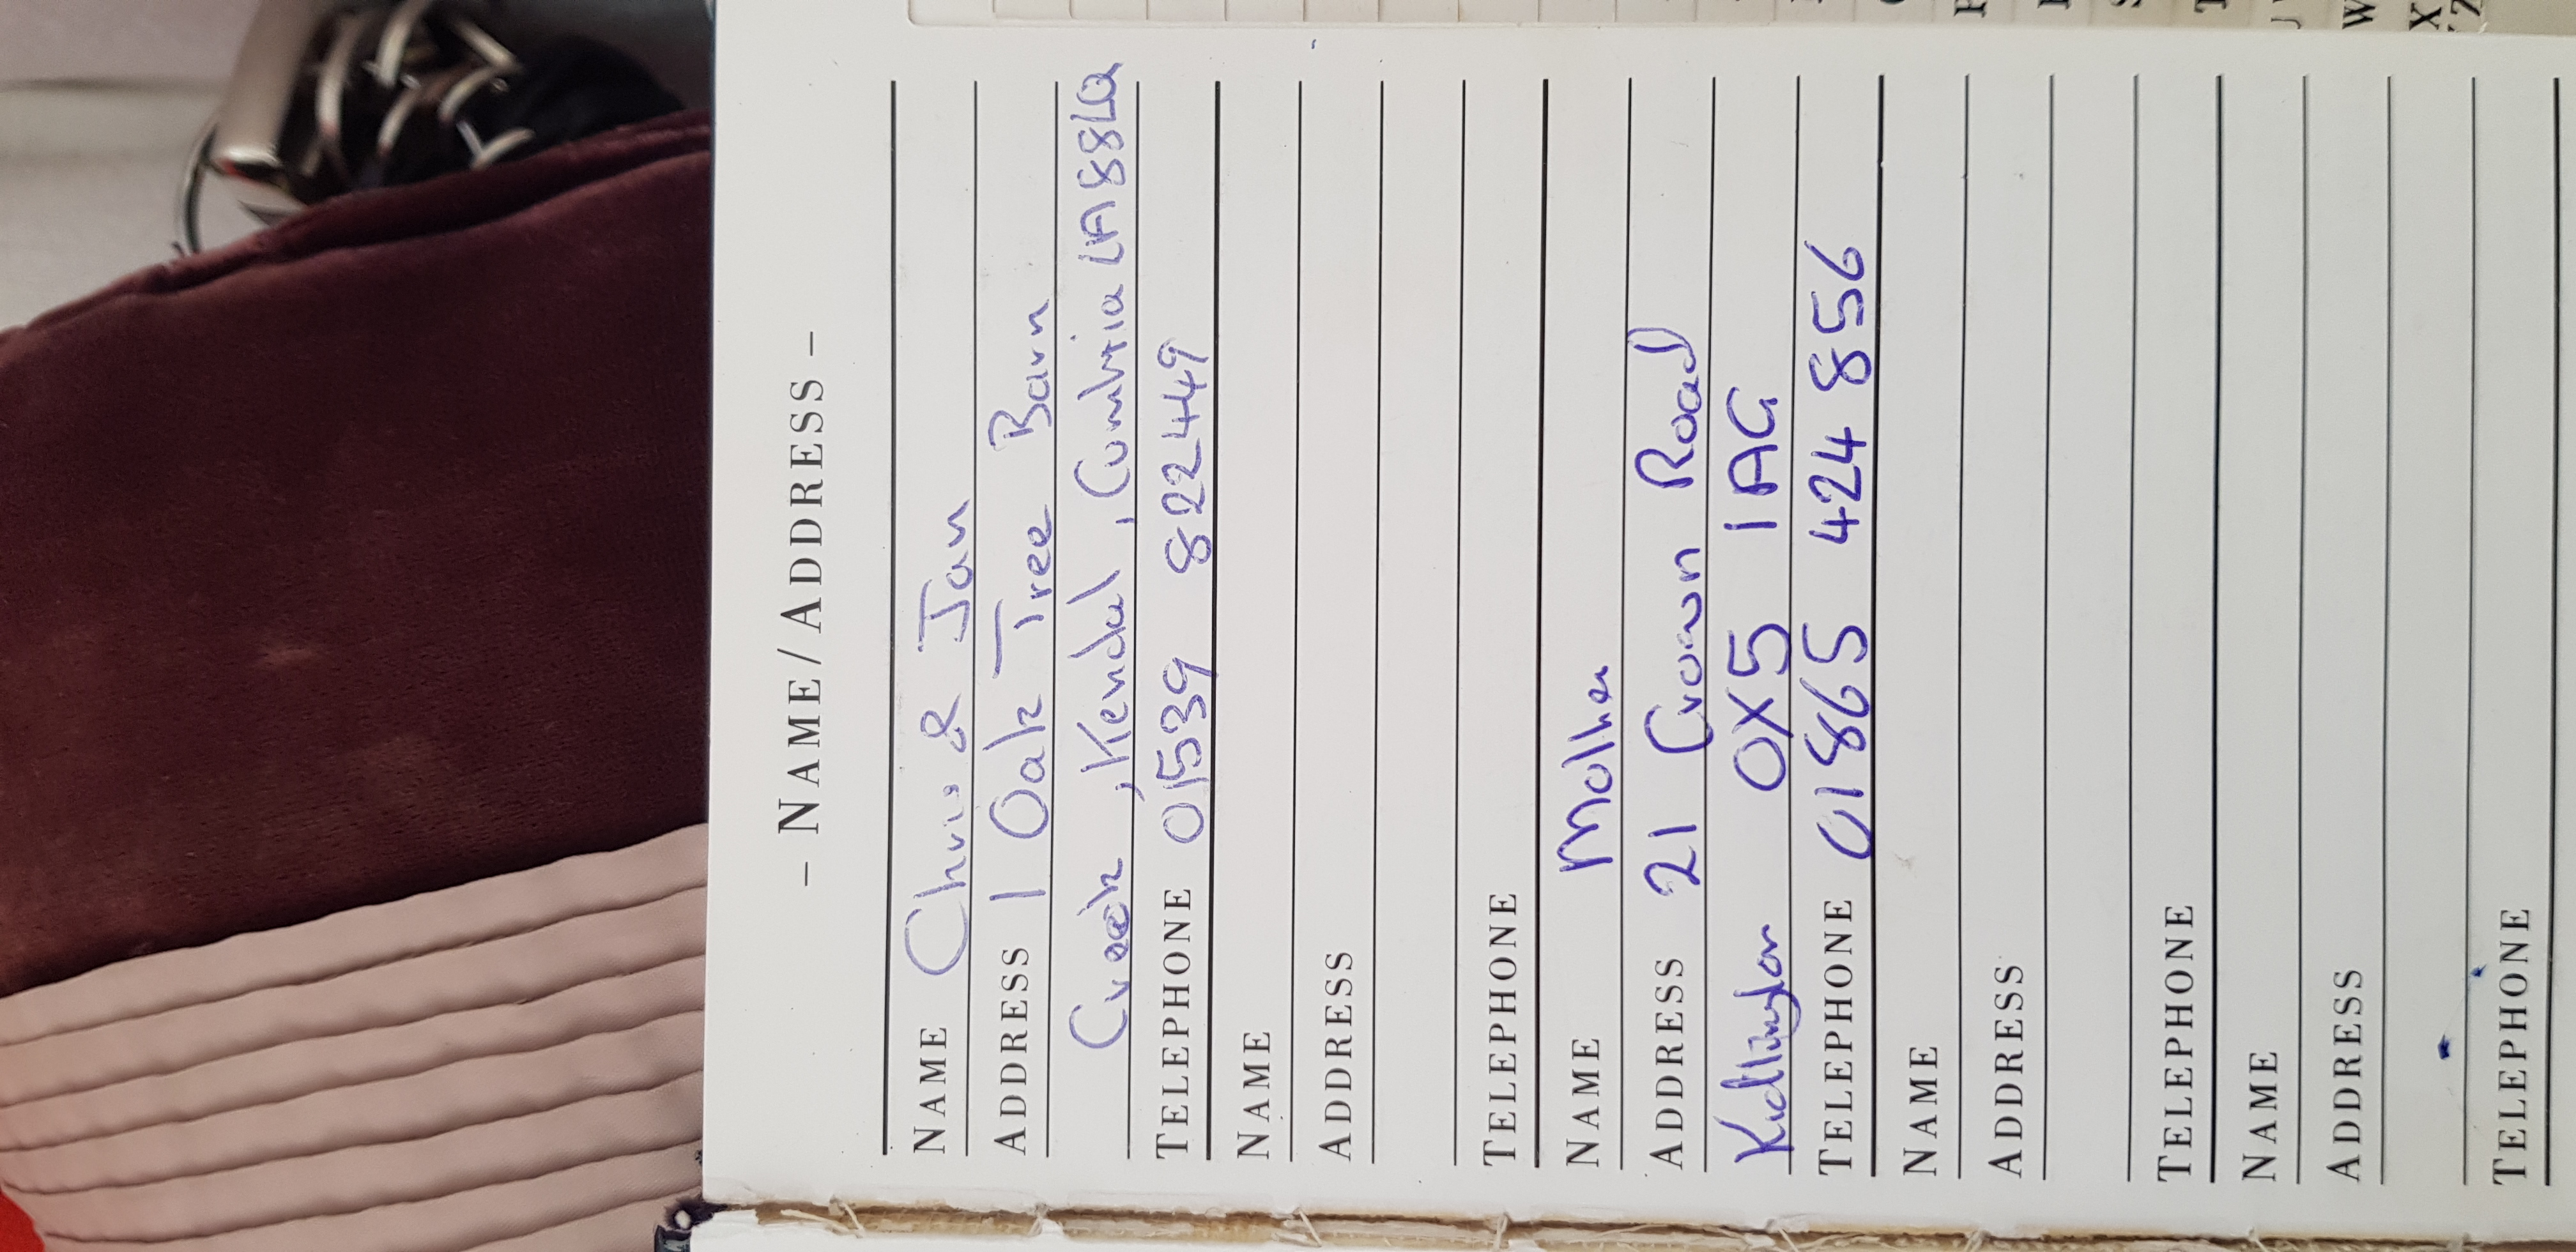 - NAME/ADDRESS -
NAME Chris & Jan
ADDRESS 1 Oak Tree Barn
Crook, Kendal, Cumbria LA88LQ
TELEPHONE 01539 822449
NAME
ADDRESS
TELEPHONE
NAME Mother
ADDRESS 21 Crown Road
Kidlington OX5 1AG
TELEPHONE 01865 424 856
NAME
ADDRESS
TELEPHONE
NAME
ADDRESS
TELEPHONE